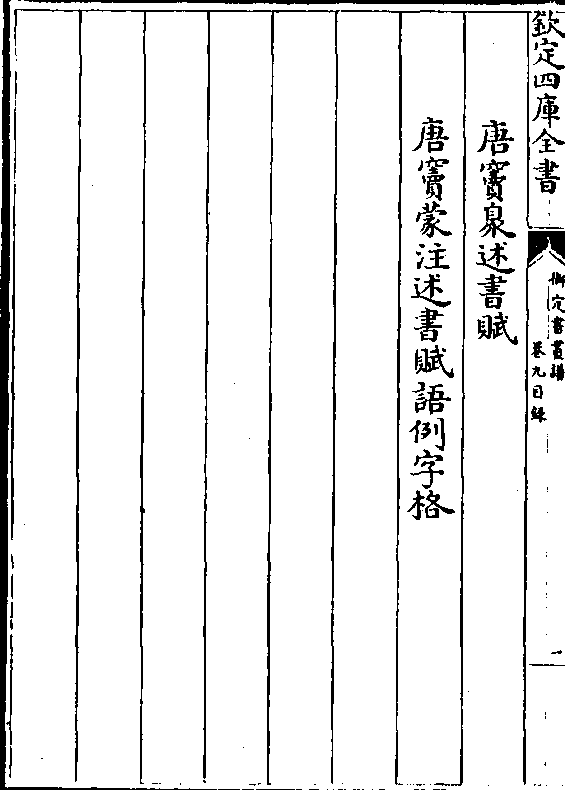 欽定四庫全書
御定書畫譜
卷九目錄
一
唐竇臮述書賦
唐竇蒙注述書賦語例字格